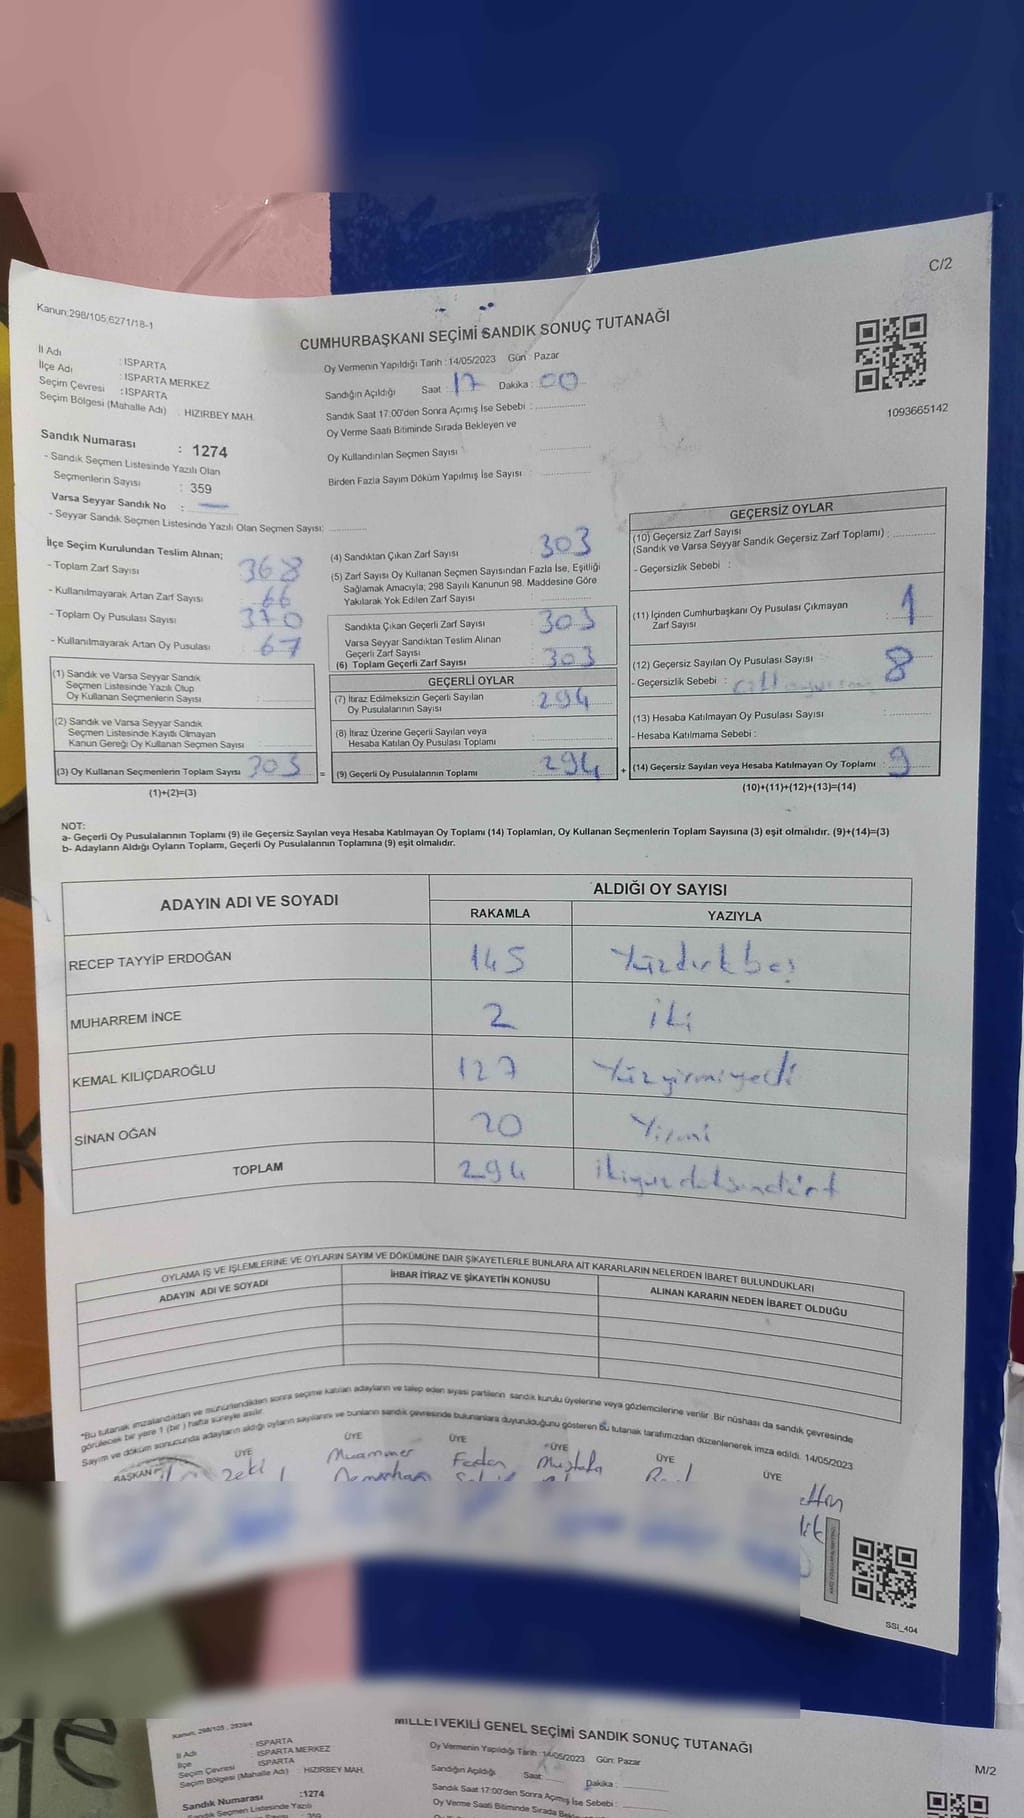 C/2
Kanun:298/105,6271/18-1
CUMHURBAŞKANI SEÇİMİ SANDIK SONUÇ TUTANAĞI
İl Adı : ISPARTA
İlçe Adı : ISPARTA MERKEZ
Seçim Çevresi : ISPARTA
Seçim Bölgesi (Mahalle Adı) : HIZIRBEY MAH.
Oy Vermenin Yapıldığı Tarih : 14/05/2023 Gün : Pazar
Sandığın Açıldığı Saat : 17 Dakika : 00
Sandık Saat 17:00'den Sonra Açımış İse Sebebi :
Oy Verme Saati Bitiminde Sırada Bekleyen ve
Oy Kullandırılan Seçmen Sayısı :
Birden Fazla Sayım Döküm Yapılmış İse Sayısı :
1093665142
Sandık Numarası : 1274
- Sandık Seçmen Listesinde Yazılı Olan
Seçmenlerin Sayısı : 359
Varsa Seyyar Sandık No : —
- Seyyar Sandık Seçmen Listesinde Yazılı Olan Seçmen Sayısı:
İlçe Seçim Kurulundan Teslim Alınan;
- Toplam Zarf Sayısı : 368
- Kullanılmayarak Artan Zarf Sayısı : 66
- Toplam Oy Pusulası Sayısı : 370
- Kullanılmayarak Artan Oy Pusulası : 67
(1) Sandık ve Varsa Seyyar Sandık
Seçmen Listesinde Yazılı Olup
Oy Kullanan Seçmenlerin Sayısı :
(2) Sandık ve Varsa Seyyar Sandık
Seçmen Listesinde Kayıtlı Olmayan
Kanun Gereği Oy Kullanan Seçmen Sayısı :
(3) Oy Kullanan Seçmenlerin Toplam Sayısı : 303
(1)+(2)=(3)
(4) Sandıktan Çıkan Zarf Sayısı : 303
(5) Zarf Sayısı Oy Kullanan Seçmen Sayısından Fazla İse, Eşitliği
Sağlamak Amacıyla; 298 Sayılı Kanunun 98. Maddesine Göre
Yakılarak Yok Edilen Zarf Sayısı :
Sandıkta Çıkan Geçerli Zarf Sayısı : 303
Varsa Seyyar Sandıktan Teslim Alınan
Geçerli Zarf Sayısı :
(6) Toplam Geçerli Zarf Sayısı : 303
GEÇERLİ OYLAR
(7) İtiraz Edilmeksizin Geçerli Sayılan
Oy Pusulalarının Sayısı : 294
(8) İtiraz Üzerine Geçerli Sayılan veya
Hesaba Katılan Oy Pusulası Toplamı :
= (9) Geçerli Oy Pusulalarının Toplamı : 294
GEÇERSİZ OYLAR
(10) Geçersiz Zarf Sayısı
(Sandık ve Varsa Seyyar Sandık Geçersiz Zarf Toplamı) :
- Geçersizlik Sebebi :
(11) İçinden Cumhurbaşkanı Oy Pusulası Çıkmayan
Zarf Sayısı : 1
(12) Geçersiz Sayılan Oy Pusulası Sayısı : 8
- Geçersizlik Sebebi :
(13) Hesaba Katılmayan Oy Pusulası Sayısı :
- Hesaba Katılmama Sebebi :
+ (14) Geçersiz Sayılan veya Hesaba Katılmayan Oy Toplamı : 9
(10)+(11)+(12)+(13)=(14)
NOT:
a- Geçerli Oy Pusulalarının Toplamı (9) ile Geçersiz Sayılan veya Hesaba Katılmayan Oy Toplamı (14) Toplamları, Oy Kullanan Seçmenlerin Toplam Sayısına (3) eşit olmalıdır. (9)+(14)=(3)
b- Adayların Aldığı Oyların Toplamı, Geçerli Oy Pusulalarının Toplamına (9) eşit olmalıdır.
ADAYIN ADI VE SOYADI ALDIĞI OY SAYISI
RAKAMLA YAZIYLA
RECEP TAYYİP ERDOĞAN 145 Yüzdırkbeş
MUHARREM İNCE 2 iki
KEMAL KILIÇDAROĞLU 127 Yüzyirmiyedi
SİNAN OĞAN 20 Yirmi
TOPLAM 294
OYLAMA İŞ VE İŞLEMLERİNE VE OYLARIN SAYIM VE DÖKÜMÜNE DAİR ŞİKAYETLERLE BUNLARA AİT KARARLARIN NELERDEN İBARET BULUNDUKLARI
ADAYIN ADI VE SOYADI İHBAR İTİRAZ VE ŞİKAYETİN KONUSU ALINAN KARARIN NEDEN İBARET OLDUĞU
"Bu tutanak imzalandıktan ve mühürlendikten sonra seçime katılan adayların ve talep eden siyasi partilerin sandık kurulu üyelerine veya gözlemcilerine verilir. Bir nüshası da sandık çevresinde
görülecek bir yere 1 (bir) hafta süreyle asılır.
Sayım ve döküm sonucunda adayların aldığı oyların sayılarını ve bunların sandık çevresinde bulunanlara duyurulduğunu gösteren bu tutanak tarafımızdan düzenlenerek imza edildi. 14/05/2023
BAŞKAN ÜYE ÜYE ÜYE ÜYE ÜYE ÜYE
Zeki Muammer Mustafa
SSI_404
MİLLETVEKİLİ GENEL SEÇİMİ SANDIK SONUÇ TUTANAĞI
M/2
İl Adı : ISPARTA
İlçe : ISPARTA MERKEZ
Seçim Çevresi : ISPARTA
Seçim Bölgesi (Mahalle Adı) : HIZIRBEY MAH.
Oy Vermenin Yapıldığı Tarih : 14/05/2023 Gün: Pazar
Sandığın Açıldığı Saat: Dakika :
Sandık Saat 17:00'den Sonra Açımış İse Sebebi :
Sandık Numarası :1274
- Sandık Seçmen Listesinde Yazılı